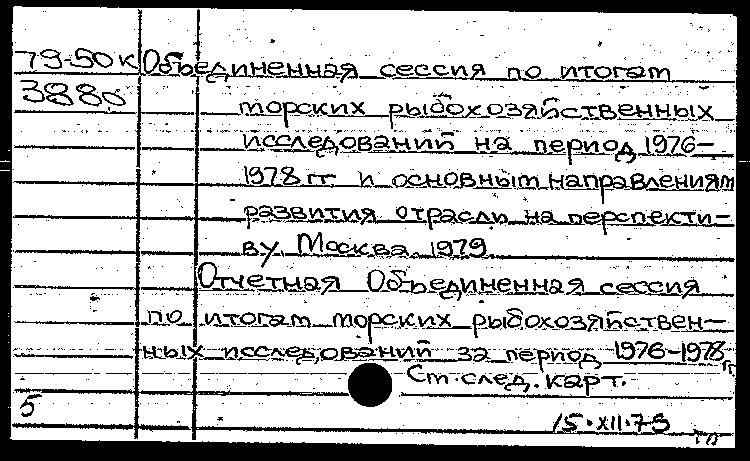 79-50к Объединенная сессия по итогам
3880 морских рыбохозяйственных
исследований на период 1976-
1978 гг. и основным направлениям
развития отрасли на перспекти-
ву. Москва. 1979.
Отчетная Объединенная сессия
по итогам морских рыбохозяйствен-
ных исследований за период 1976-1978 гг
См. след. карт.
5
15.XII.79